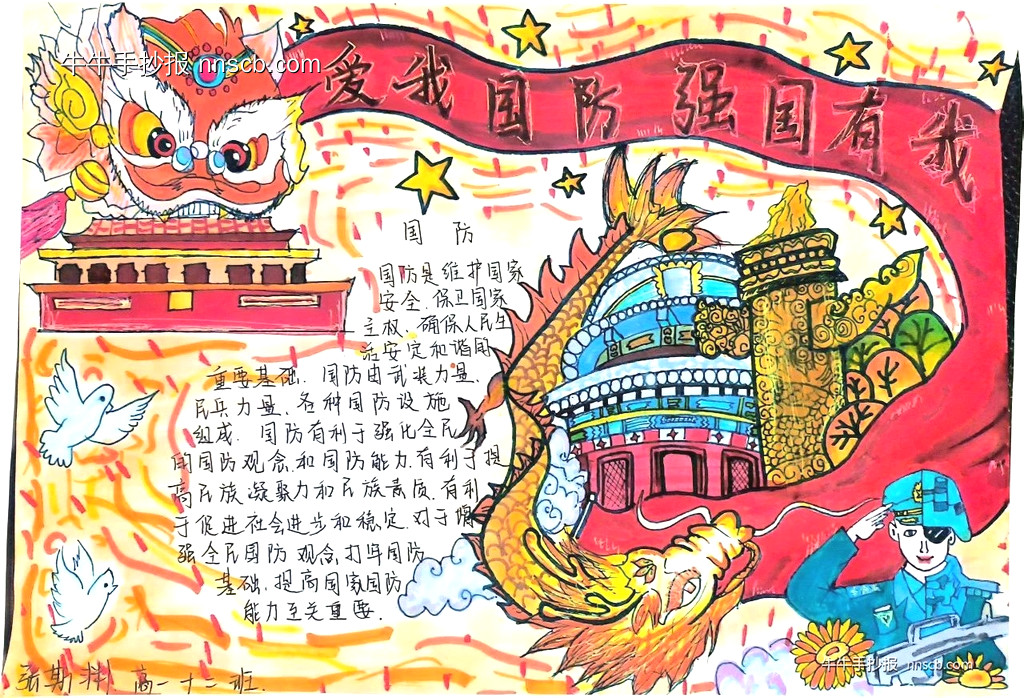 牛牛手抄报 nnscb.com
爱我国防 强国有我
国防
国防是维护国家
安全、保卫国家
主权、确保人民生
活安定和谐的
重要基础、国防由武装力量、
民兵力量、各种国防设施
组成. 国防有利于强化全民
的国防观念和国防能力.有利于提
高民族凝聚力和民族素质.有利
于促进社会进步和稳定.对于增
强全民国防观念,打牢国防
基础,提高国家国防
能力至关重要.
张斯 高一十二班.
牛牛手抄报 nnscb.com